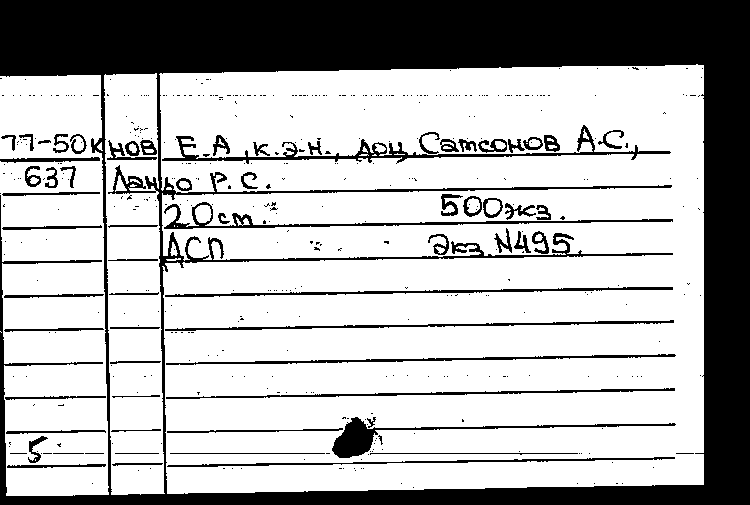 77-50к нов Е.А., к.э.н., доц. Самсонов А.С.,
637 Ландо Р.С.
20 см. 500 экз.
ДСП Экз. N495.
5